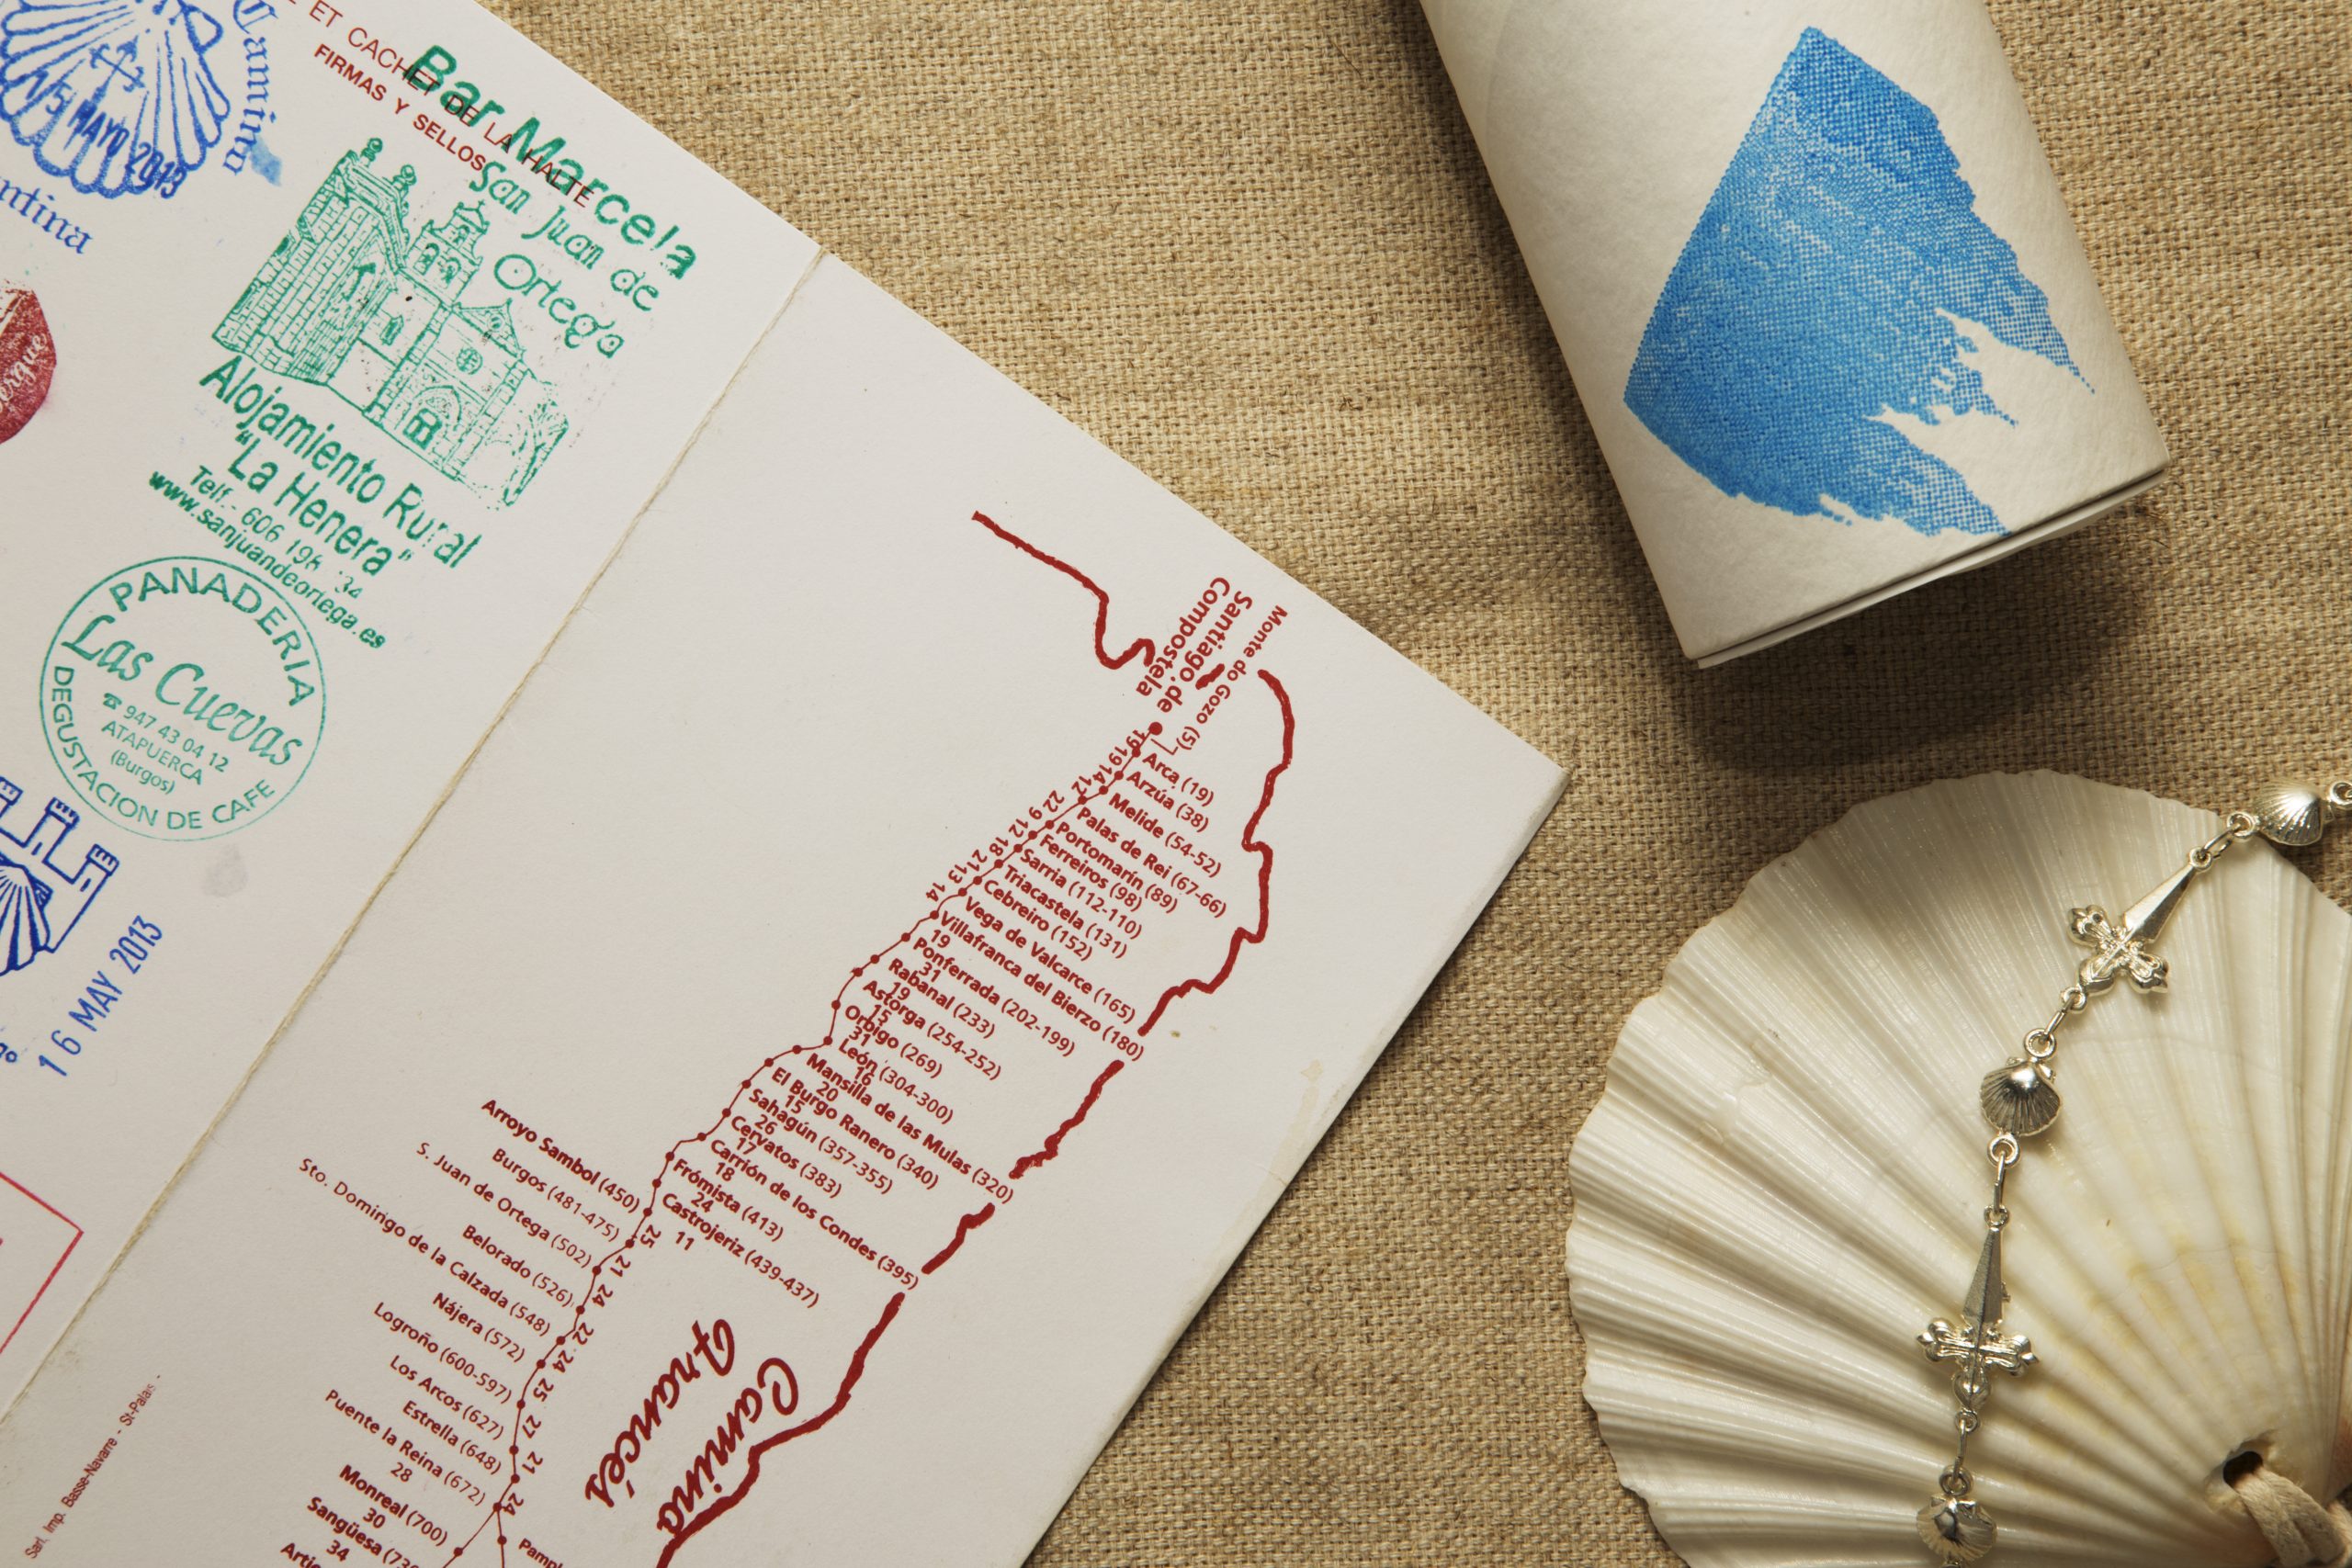 Camino
5 MAYO 2013
ET CACHET DE LA HALTE
FIRMAS Y SELLOS
Bar Marcela
San Juan de
Ortega
Alojamiento Rural
"La Henera"
Telf.- 606 198
www.sanjuandeortega.es
PANADERIA
Las Cuevas
☎ 947 43 04 12
ATAPUERCA
(Burgos)
DEGUSTACION DE CAFE
16 MAY 2013
Monte do Gozo (5)
Santiago de
Compostela
19
Arca (19)
19
Arzúa (38)
14
Melide (54-52)
12
Palas de Rei (67-66)
22
Portomarín (89)
9
Ferreiros (98)
12
Sarria (112-110)
18
Triacastela (131)
21
Cebreiro (152)
13
Vega de Valcarce (165)
14
Villafranca del Bierzo (180)
19
Ponferrada (202-199)
31
Rabanal (233)
19
Astorga (254-252)
15
Orbigo (269)
31
León (304-300)
16
Mansilla de las Mulas (320)
20
El Burgo Ranero (340)
15
Sahagún (357-355)
26
Cervatos (383)
17
Carrión de los Condes (395)
18
Frómista (413)
24
Castrojeriz (439-437)
11
Arroyo Sambol (450)
25
Burgos (481-475)
21
S. Juan de Ortega (502)
24
Belorado (526)
22
Sto. Domingo de la Calzada (548)
24
Nájera (572)
25
Logroño (600-597)
27
Los Arcos (627)
21
Estrella (648)
24
Puente la Reina (672)
28
Monreal (700)
30
Sangüesa (730
34
Camino
Francés
Sarl. Imp. Basse-Navarre - St-Palais -